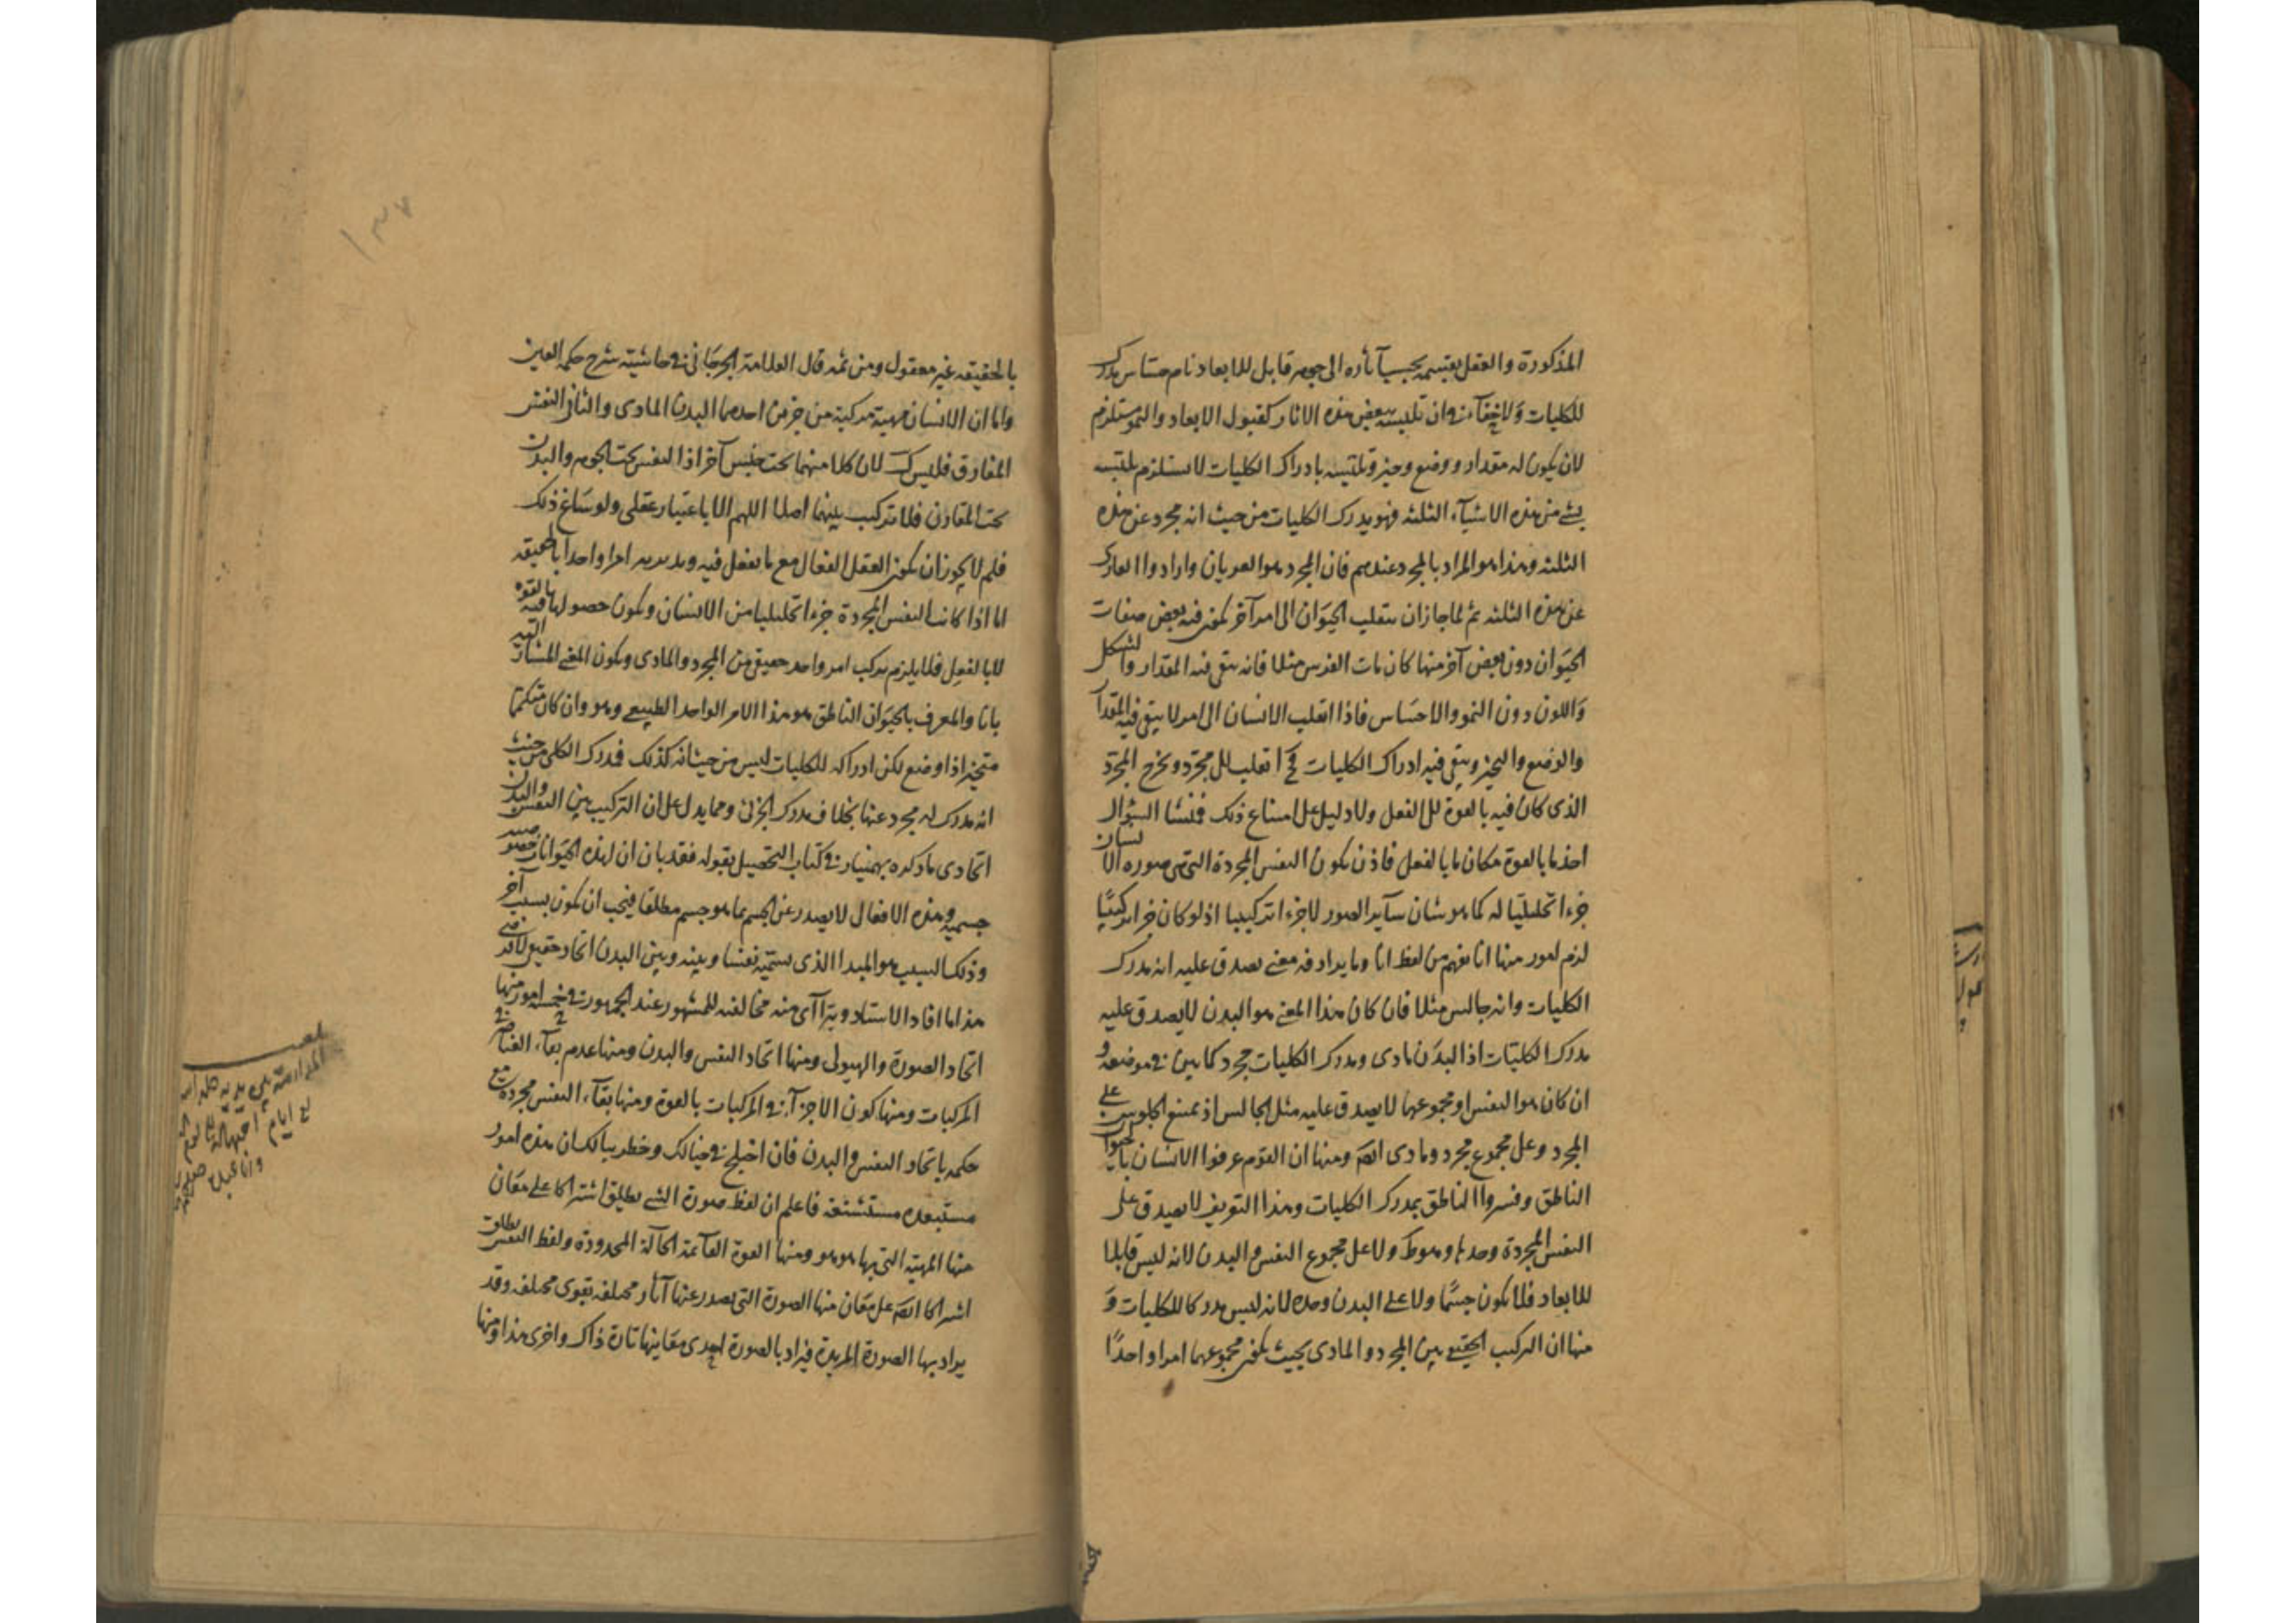 المذكورة والعقل يقسمه بحسب آثاره الى جوهر قابل للابعاد نام حساس مدرك
للكليات ولا خفآء فى ان تلبسه ببعض هذه الاثار كقبول الابعاد والنمو مستلزم
لان يكون له مقدار ووضع وحيز وتلبسه بادراك الكليات لا يستلزم تلبسه
بشئ من هذه الاشيآء الثلثه فهو يدرك الكليات من حيث انه مجرد عن هذه
الثلثه وهذا هو المراد بالمجرد عندهم فان المجرد هو العريان وارادوا العارى
عن هذه الثلثه ثم لما جاز ان ينقلب الحيوان الى امر آخر يكون فيه بعض صفات
الحيوان دون بعض آخر منها كان مات الفرس مثلا فانه يبقى فيه المقدار والشكل
واللون دون النمو والاحساس فاذا انقلب الانسان الى امر لا يبقى فيه المقدار
والوضع والتحيز ويبقى فيه ادراك الكليات فح انقلب الى مجرد وخرج المجرد
الذى كان فيه بالقوة الى الفعل ولا دليل على امتناع ذلك فنشا السؤال
اخذ ما بالقوة مكان ما بالفعل فاذن يكون النفس المجردة التى هى صورة الانسان
جزءا تحليليا له كما هو شان سآير الصور لا جزءا تركيبيا اذ لو كان جزءا تركيبيا
لزم امور منها انا نفهم من لفظ انا وما يرادفه معنى يصدق عليه انه مدرك
الكليات وانه جالس مثلا فان كان هذا المعنى هو البدن لا يصدق عليه
مدرك الكليات اذ البدن مادى ومدرك الكليات مجرد كما بين فى موضعه و
ان كان هو النفس او مجموعهما لا يصدق عليه مثل الجالس اذ يمتنع الجلوس على
المجرد وعلى مجموع مجرد ومادى ايضا ومنها ان القوم عرفوا الانسان بالحيوان
الناطق وفسروا الناطق بمدرك الكليات وهذا التعريف لا يصدق على
النفس المجردة وحدها وهو ظ ولا على مجموع النفس والبدن لانه ليس قابلا
للابعاد فلا يكون جسما ولا على البدن وحده لانه ليس مدركا للكليات و
منها ان التركيب الحقيقى بين المجرد والمادى بحيث يكون مجموعهما امرا واحدا
بالحقيقه غير معقول ومن ثمه قال العلامة الجرجانى فى حاشيته شرح حكمه العين
واما ان الانسان مهية مركبة من جزءين احدهما البدن المادى والثانى النفس
المفارق فليس ك لان كلا منهما تحت جنس آخر اذ النفس تحت الجوهر والبدن
تحت المقارن فلا تركيب بينهما اصلا اللهم الا باعتبار عقلى ولو ساغ ذلك
فلم لا يجوز ان يكون العقل الفعال مع ما يفعل فيه ويدبره امرا واحدا بالحقيقه
اما اذا كانت النفس المجردة جزءا تحليليا من الانسان ويكون حصولها فيه بالقوه
لا بالفعل فلا يلزم تركب امر واحد حقيقى من المجرد والمادى ويكون المعنى المشار اليه
بانا والمعرف بالحيوان الناطق هو هذا الامر الواحد الطبيعى وهو وان كان متكمما
متحيزا ذا وضع لكن ادراكه للكليات ليس من حيث انه كذلك فمدرك الكلى من حيث
انه مدرك له مجرد عنها بخلاف مدرك الجزئى ومما يدل على ان التركيب بين النفس والبدن
اتحادى ما ذكره بهمنيار فى كتاب التحصيل بقوله فقد بان ان لهذه الحيوانات
جسميه وهذه الافعال لا يصدر عن الجسم بما هو جسم مطلقا فيجب ان يكون بسبب آخر
وذلك السبب هو المبدا الذى يسميه نفسا وبينه وبين البدن اتحاد حقيقى
هذا ما افاد الاستاد ويترآاى منه مخالفته للمشهور عند الجمهور فى خمسة امور منها
اتحاد الصورة والهيولى ومنها اتحاد النفس والبدن ومنها عدم بقآء العناصر فى
المركبات ومنها كون الاجزآء فى المركبات بالقوة ومنها بقآء النفس مجردة مع
حكمه باتحاد النفس والبدن فان اختلج فى خيالك وخطر ببالك ان هذه امور
مستبعده مستشنعه فاعلم ان لفظ صورة الشئ يطلق اشتراكا على معان
منها المهية التى بها هو هو ومنها القوة القآئمة الحآلة المحدودة ولفظ النفس يطلق
اشتراكا ايضا على معان منها الصورة التى يصدر عنها آثار مختلفه بقوى مختلفه وقد
يراد بها الصورة المدبرة فيراد بالصورة احدى معانيها تارة ذاك واخرى هذا ومنها